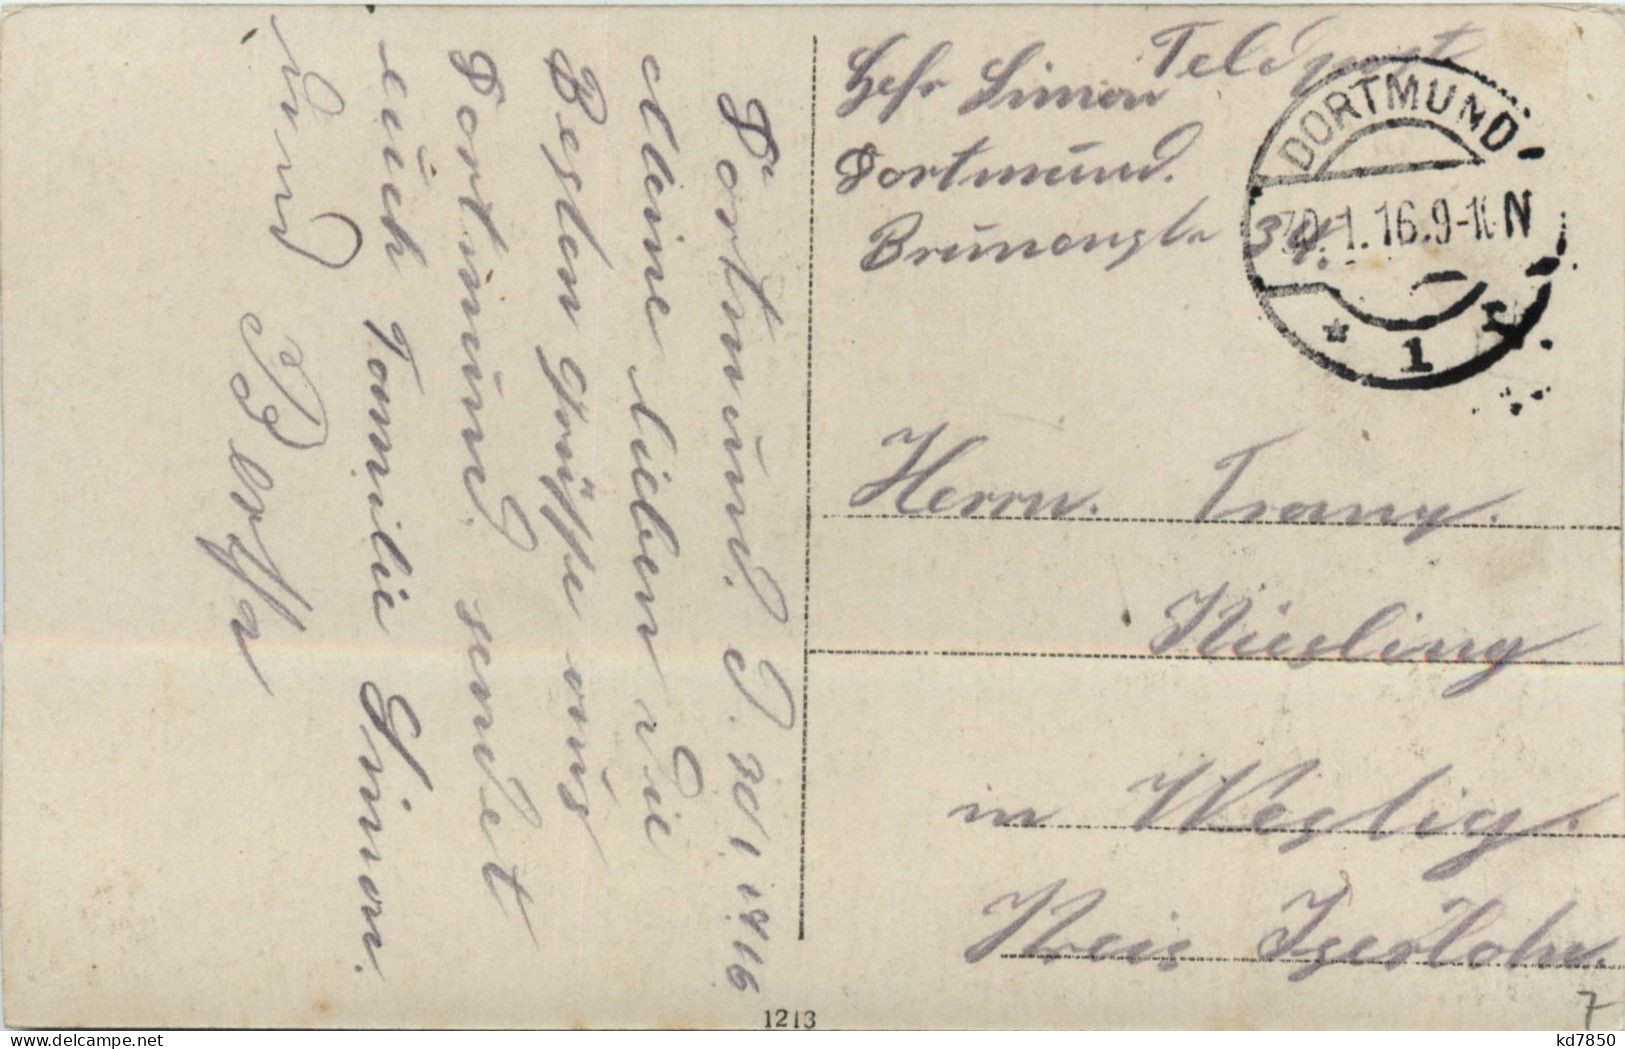 Dortmund. d. 30/1 1916
Meine lieben die
Besten grüsse aus
Dortmund. sendet
euch Familie Simon.
und
Feldpost
Simon
Dortmund.
Brunonstr 34.
DORTMUND
30.1.16.9-10 N
* 1 r
Herrn. Franz.
Kiesling
in Westig.
Kreis Iserlohn.
1213
7
kd7850